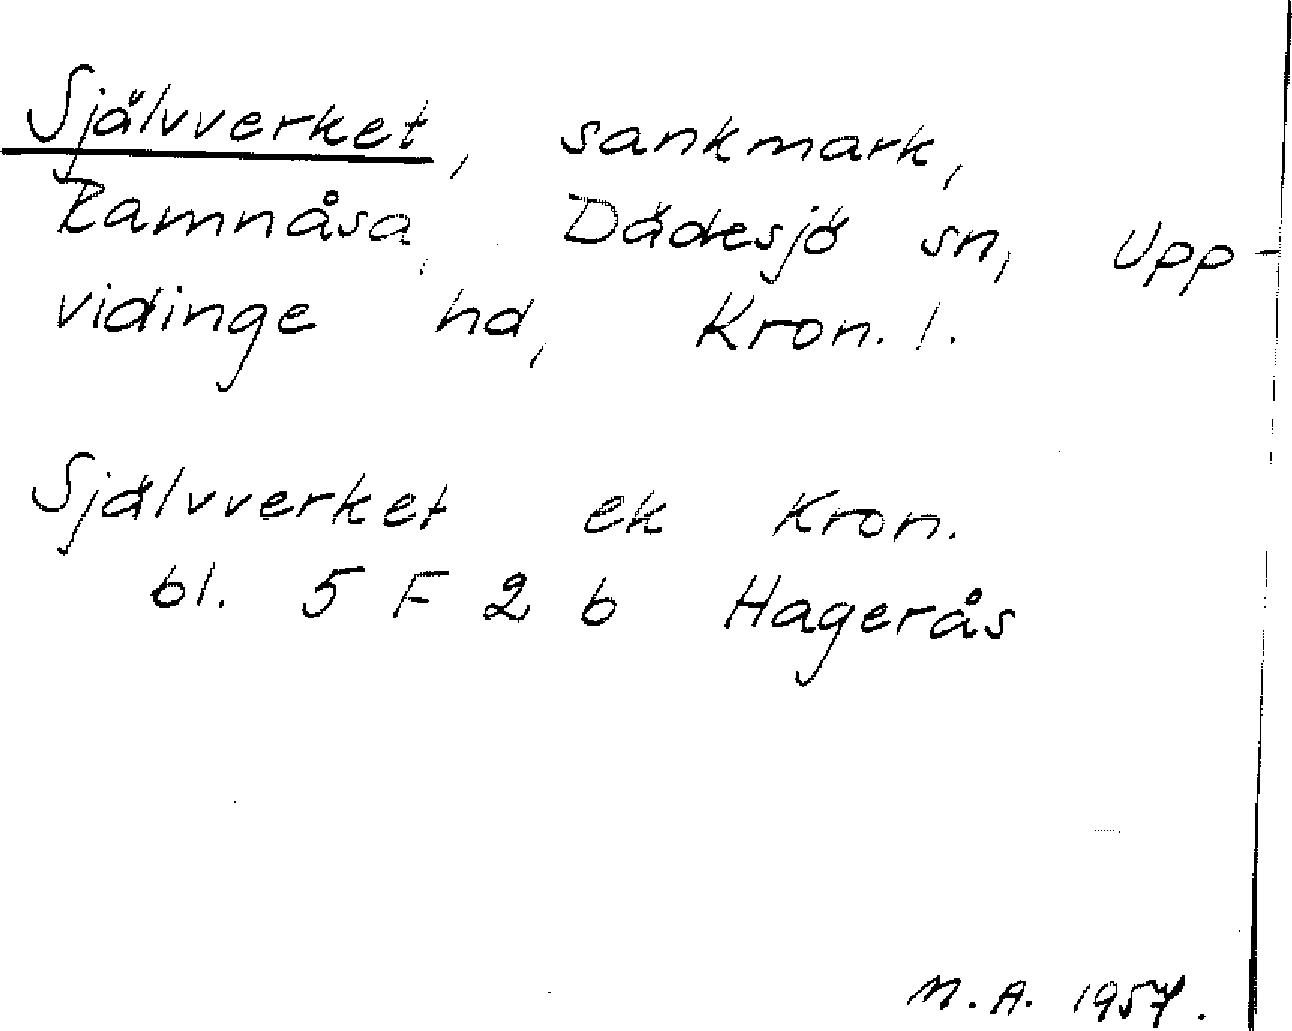 Självverket, sankmark,
Ramnåsa, Dädesjö sn, Upp-
vidinge hd, Kron. l.
Självverket ek Kron.
bl. 5 F 2 b Hagerås
M.A. 1957.